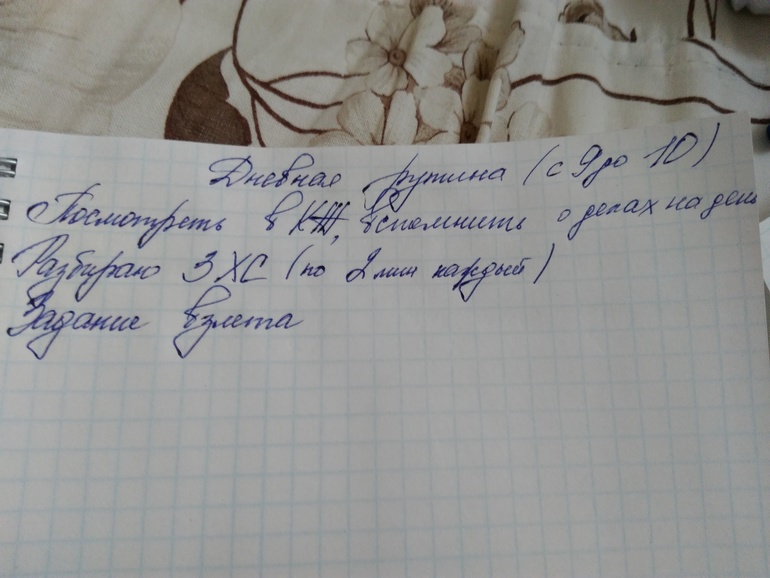 Дневная рутина (с 9 до 10)
Посмотреть в КЖ, вспомнить о делах на день
Разбираю 3 ХС (по 2 мин каждый)
Задание взлета